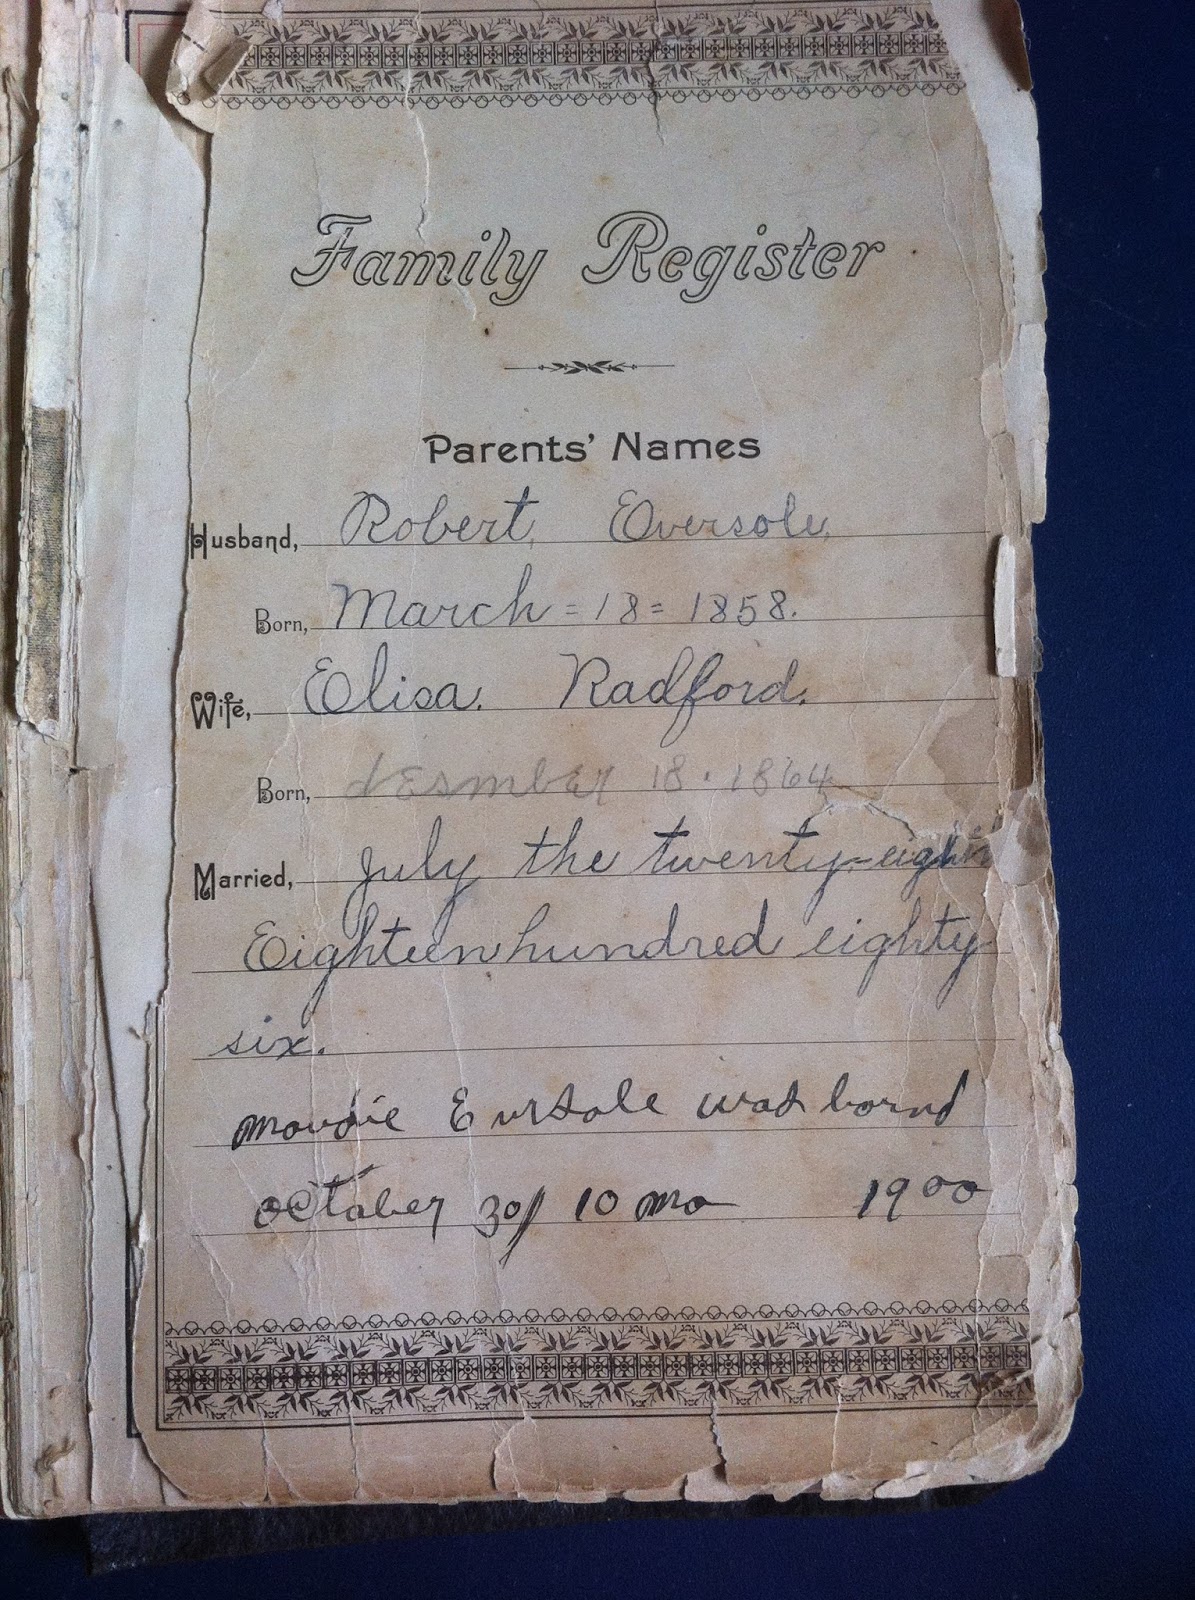 Family Register
Parents' Names
Husband, Robert, Eversole,
Born, March = 18 = 1858.
Wife, Elisa. Radford.
Born, dEsmbEr 18. 1864
Married, July the twenty-eighth
Eighteen hundred eighty
six.
Eursole was bornd
october 30/ 10 mo 1900